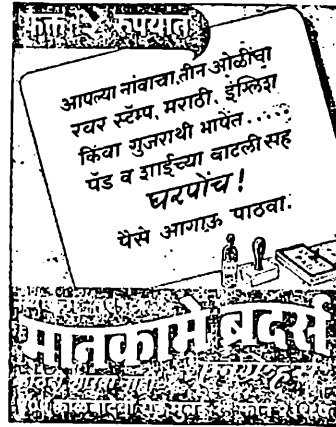 फक्त २ रुपयात
आपल्या नांवाचा तीन ओळींचा
रबर स्टॅम्प, मराठी, इंग्लिश
किंवा गुजराथी भाषेंत .....
पॅड व शाईच्या बाटली सह
घरपोंच!
पैसे आगाऊ पाठवा.
मानकामे ब्रदर्स